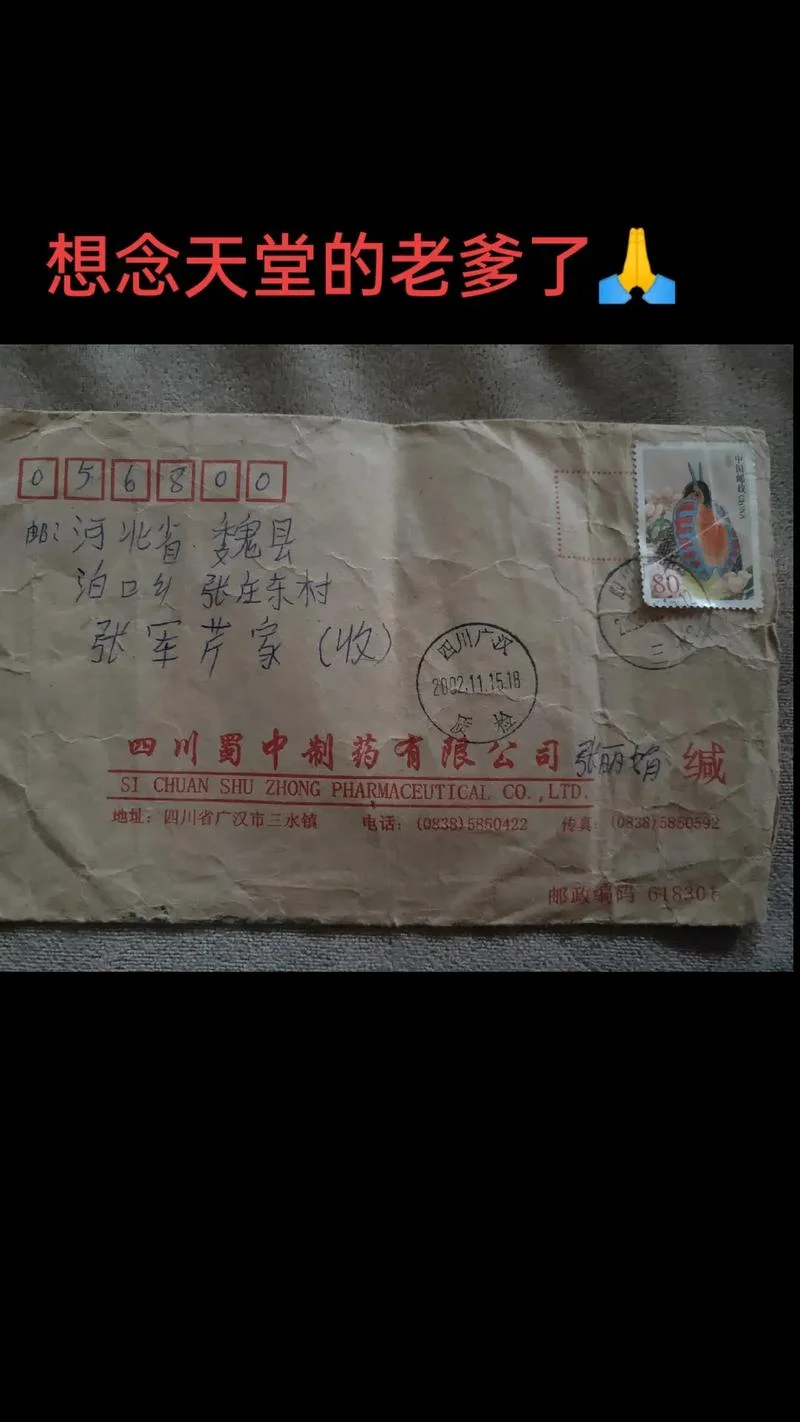 想念天堂的老爹了🙏
056800
邮:河北省 魏县
泊口乡 张庄东村
张军芹家(收)
中国邮政
80
四川广汉
2002.11.15.18
质检
四川蜀中制药有限公司 张丽娟 缄
SI CHUAN SHU ZHONG PHARMACEUTICAL CO.,LTD.
地址:四川省广汉市三水镇 电话:(0838)5850422 传真:(0838)5850592
邮政编码 618301